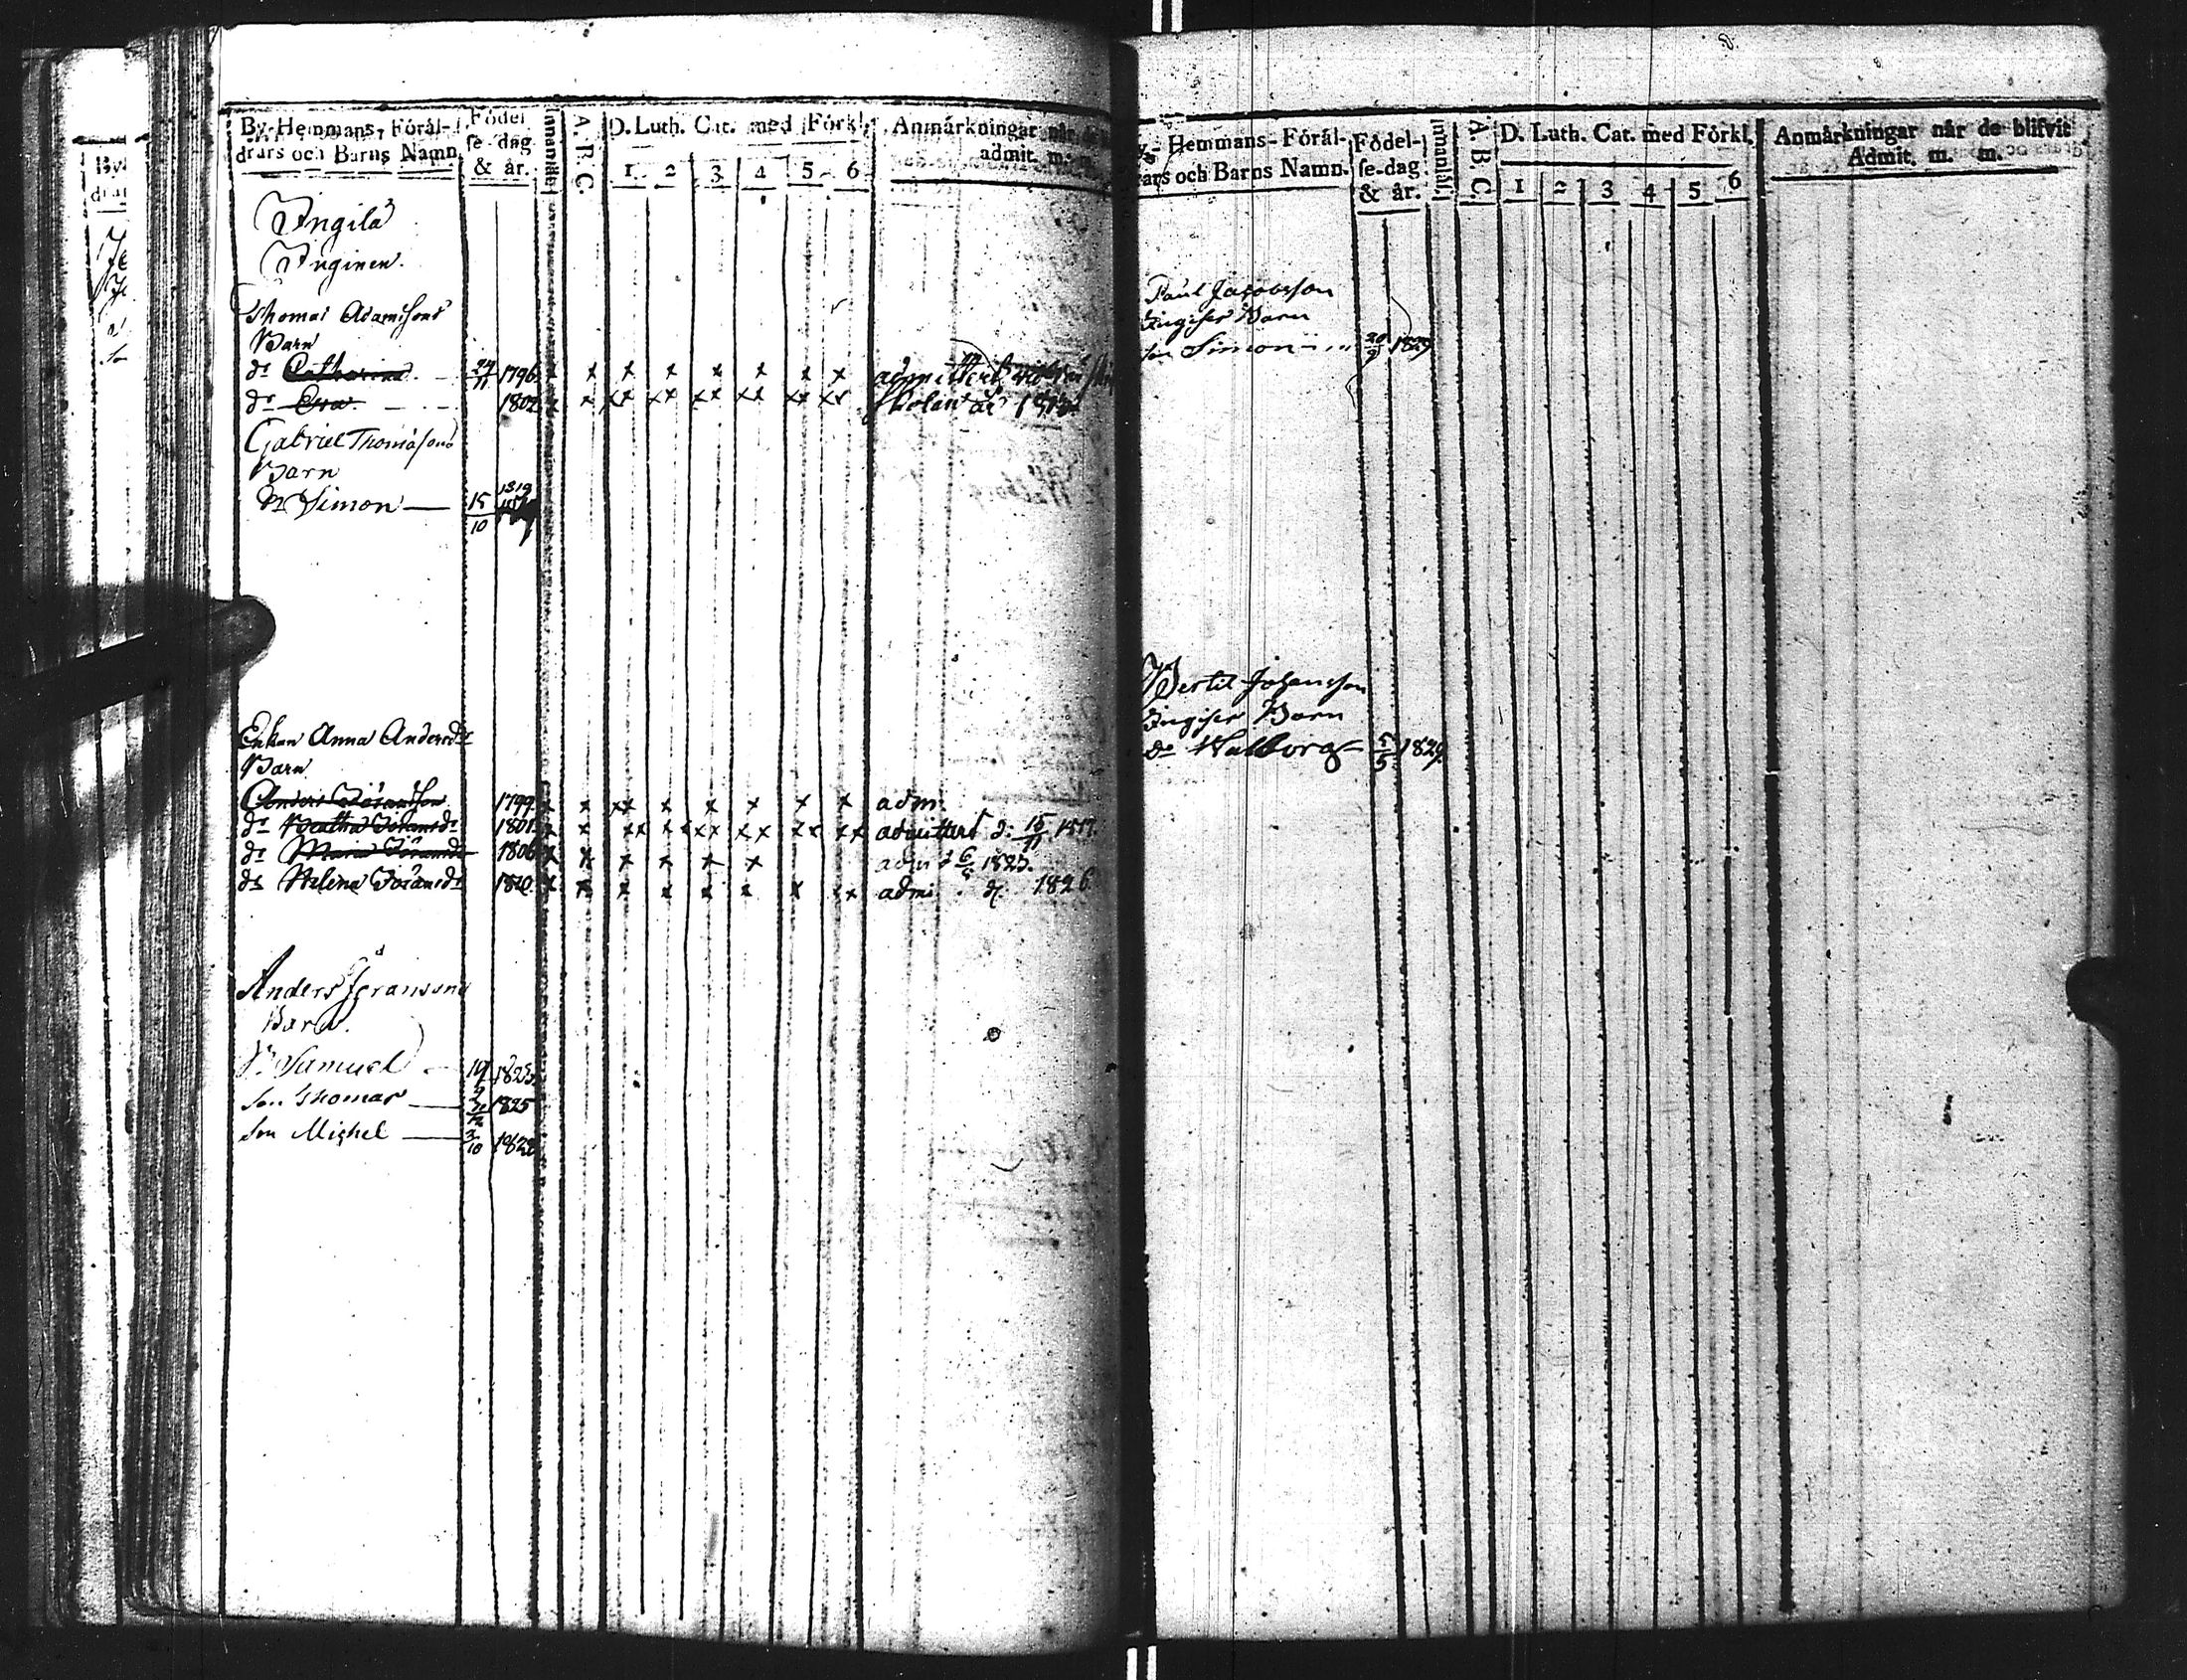 By, Hemmans, Föräl-
drars och Barns Namn.
Födel
se-dag
& år.
Innanläs
A. B. C.
D. Luth. Cat. med Förkl.
1 2 3 4 5 6
Anmärkningar när de
admit. m. m.
Ingila
Inginen.
Thomas Adamssons
Barn
dr Catharina 24/11 1796 x x x x x x x x admittert
dr Eva 1802 x x xx xx xx xx xx xx skolan år
Gabriel Thomassons
Barn
Sn Simon 15/10 1819
Enkan Anna Andersdr
Barn
Anders Göransson 1799 x x xx x x x x x adm.
dr Beatha Göransdr 1801 x x xx x xxx xx xx xx admitterd d: 15/11 1817.
dr Maria Göransdr 1806 x x x x x x adm d 6/ 1823.
dr Helena Göransdr 1810 x x x x x x x xx admi. d. 1826.
Anders Göranssons
Barn.
S. Samuel 1823
Son Thomas 1825
Son Michel 3/10 1828
By- Hemmans- Föräl-
drars och Barns Namn.
Födel-
se-dag
& år.
Innanläs.
A. B. C.
D. Luth. Cat. med Förkl.
1 2 3 4 5 6
Anmärkningar när de blifvit
Admit. m. m.
Paul Jacobsson
Ingises Barn
son Simon 20/9 1829
Bertil Johansson
Ingises Barn
dr Walborg 5/5 1829.